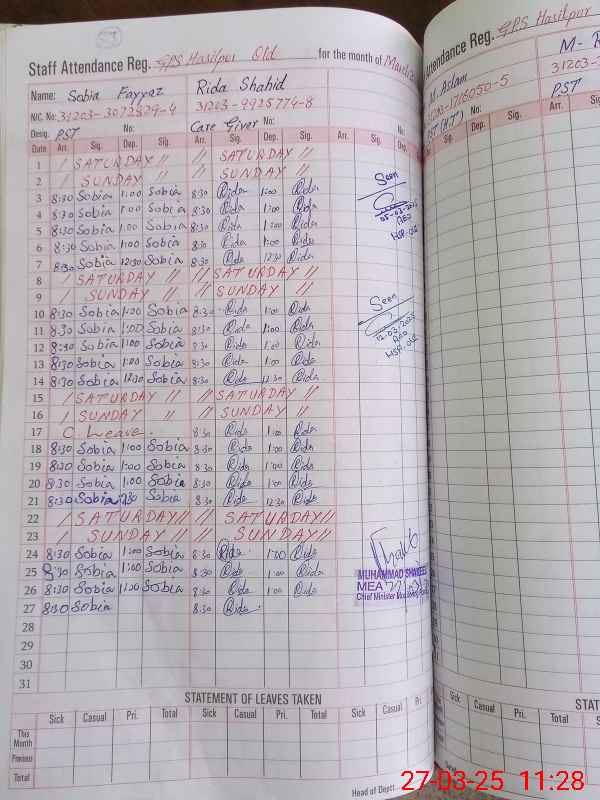 Staff Attendance Reg. GPS Hasilpur Old for the month of March
Name: Sobia Fayyaz Rida Shahid
NIC No: 31203-3072929-4 31203-9925774-8
Desig. PST No: Care Giver No: No:
Date Arr. Sig. Dep. Sig. Arr. Sig. Dep. Sig. Arr. Sig. Dep. Sig.
1 / SATURDAY // // SATURDAY //
2 / SUNDAY // // SUNDAY //
3 8:30 Sobia 1:00 Sobia 8:30 Rida 1:00 Rida
4 8:30 Sobia 1:00 Sobia 8:30 Rida 1:00 Rida
5 8:30 Sobia 1:00 Sobia 8:30 Rida 1:00 Rida
6 8:30 Sobia 1:00 Sobia 8:30 Rida 1:00 Rida
7 8:30 Sobia 12:30 Sobia 8:30 Rida 12:30 Rida
8 / SATURDAY // // SATURDAY //
9 / SUNDAY // // SUNDAY //
10 8:30 Sobia 1:00 Sobia 8:30 Rida 1:00 Rida
11 8:30 Sobia 1:00 Sobia 8:30 Rida 1:00 Rida
12 8:30 Sobia 1:00 Sobia 8:30 Rida 1:00 Rida
13 8:30 Sobia 1:00 Sobia 8:30 Rida 1:00 Rida
14 8:30 Sobia 12:30 Sobia 8:30 Rida 12:30 Rida
15 / SATURDAY // // SATURDAY //
16 / SUNDAY // // SUNDAY //
17 C Leave. 8:30 Rida 1:00 Rida
18 8:30 Sobia 1:00 Sobia 8:30 Rida 1:00 Rida
19 8:30 Sobia 1:00 Sobia 8:30 Rida 1:00 Rida
20 8:30 Sobia 1:00 Sobia 8:30 Rida 1:00 Rida
21 8:30 Sobia 12:30 Sobia 8:30 Rida 12:30 Rida
22 / SATURDAY // // SATURDAY //
23 / SUNDAY // // SUNDAY //
24 8:30 Sobia 1:00 Sobia 8:30 Rida 1:00 Rida
25 8:30 Sobia 1:00 Sobia 8:30 Rida 1:00 Rida
26 8:30 Sobia 1:00 Sobia 8:30 Rida 1:00 Rida
27 8:30 Sobia 8:30 Rida
28
29
30
31
Seen
05-03-2025
AEO
HSP. OLD
Seen
12-03-2025
AEO
HSP. OLD
MUHAMMAD SHAKEEL
MEA
Chief Minister
STATEMENT OF LEAVES TAKEN
Sick Casual Pri. Total Sick Casual Pri. Total Sick Casual Pri.
This Month
Previous
Total
Head of Deptt.
Attendance Reg. GPS Hasilpur
M. Aslam
31203-
PST (HT) No: PST
Arr. Sig. Dep. Sig. Arr. Sig.
Sick Casual Pri. Total Sick
27-03-25 11:28